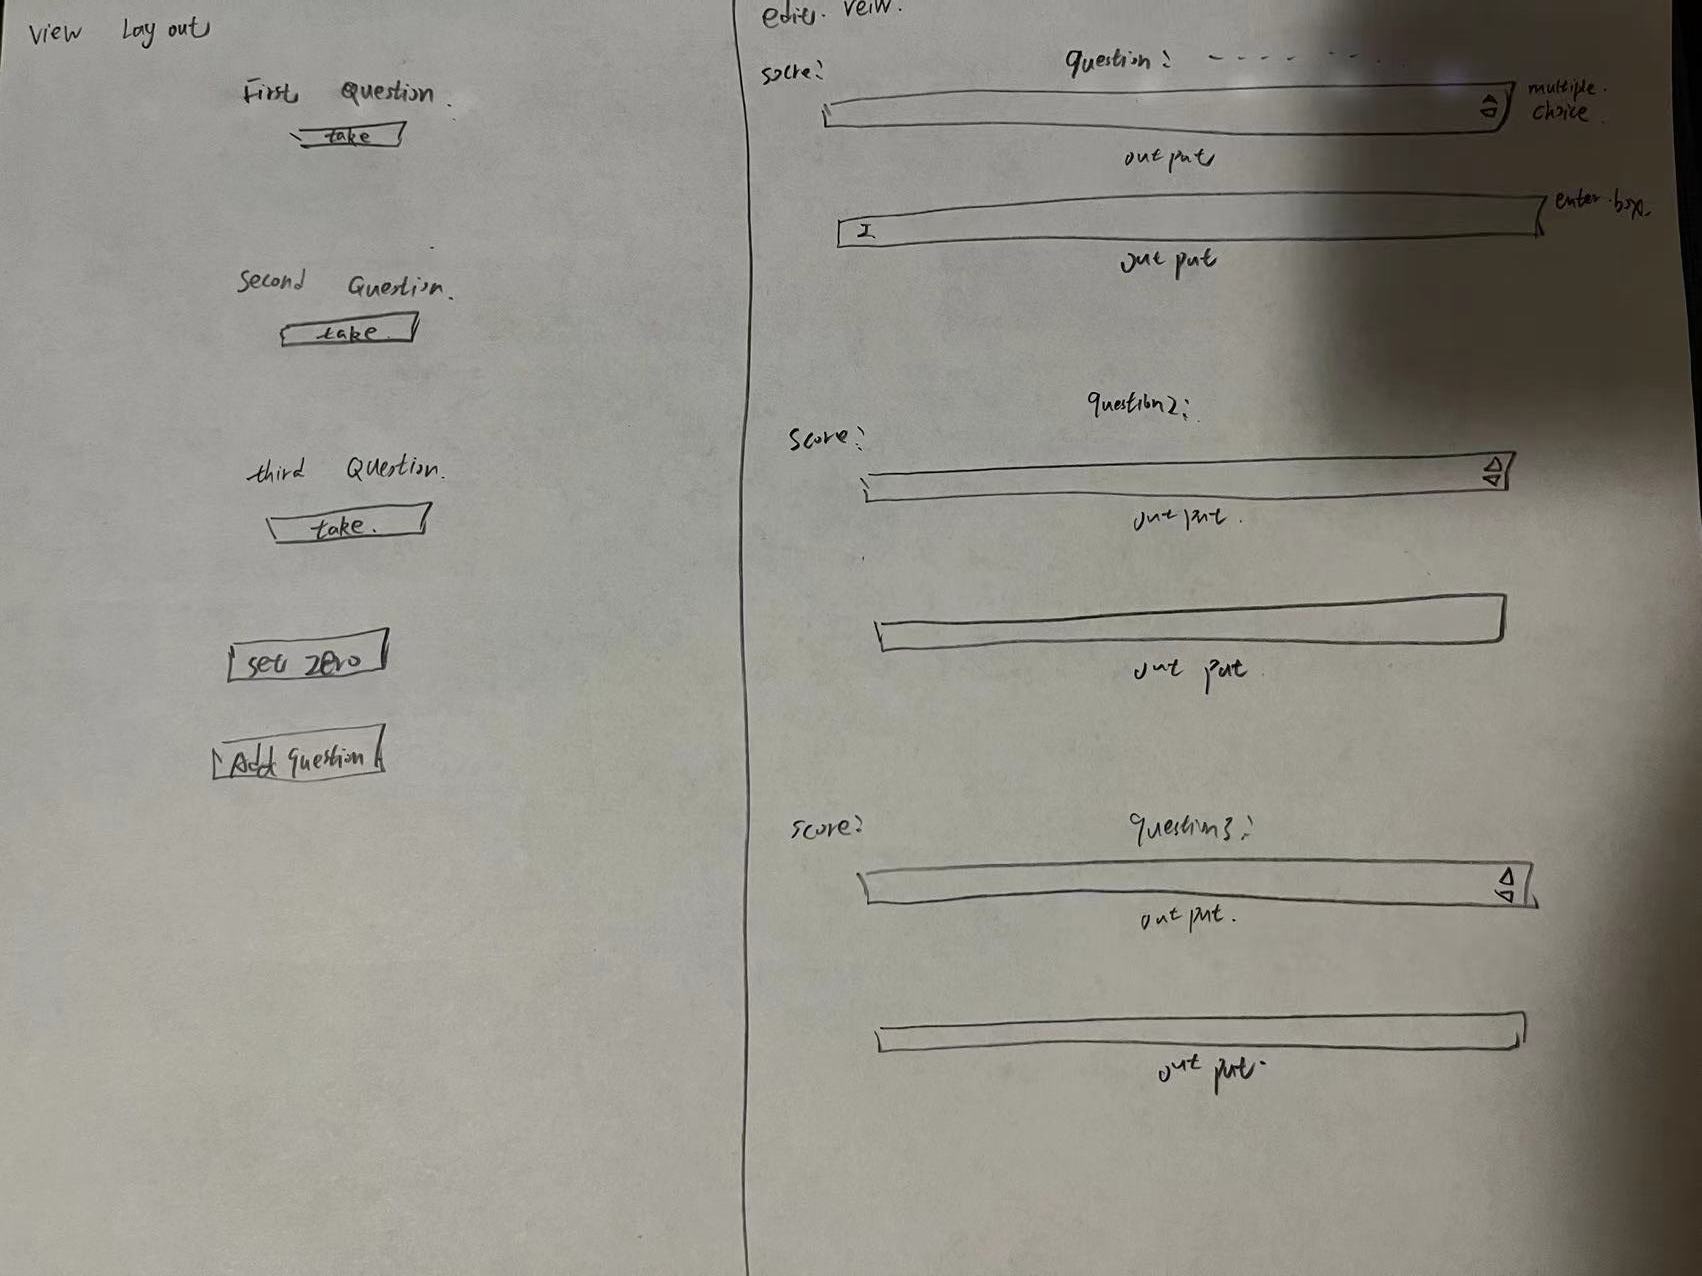 View Lay out
First Question.
take
Second Question.
take.
third Question.
take.
set zero
Add question
edit. veiw.
socre:
question: - - - - - - -
multiple.
choice.
out put
enter box.
I
out put
question2:
score:
out put.
out put.
score:
question3:
out put.
out put.